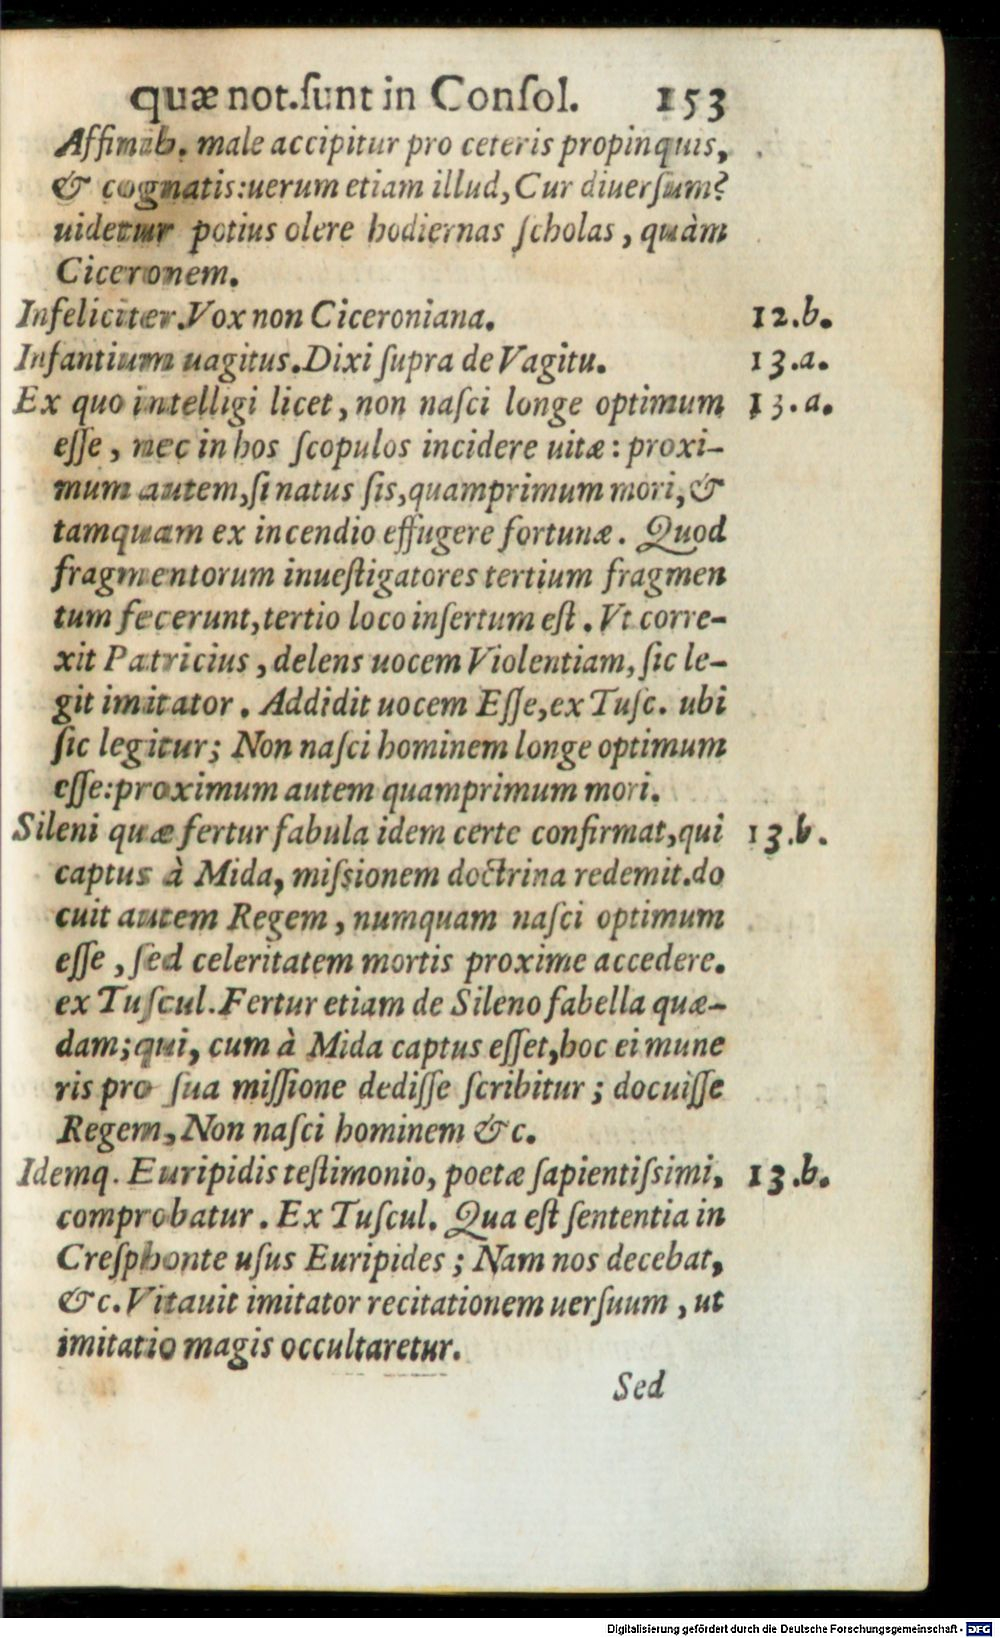 quæ not.ſunt in Conſol. 153
Affinib. male accipitur pro ceteris propinquis,
& cognatis:uerum etiam illud, Cur diuerſum?
uidetur potius olere hodiernas ſcholas, quàm
Ciceronem.
Infeliciter. Vox non Ciceroniana. 12.b.
Infantium uagitus. Dixi ſupra de Vagitu. 13.a.
Ex quo intelligi licet, non naſci longe optimum 13.a.
eſſe, nec in hos ſcopulos incidere uitæ: proxi-
mum autem,ſi natus ſis,quamprimum mori,&
tamquam ex incendio effugere fortunæ. Quod
fragmentorum inueſtigatores tertium fragmen
tum fecerunt,tertio loco inſertum eſt. Vt corre-
xit Patricius, delens uocem Violentiam, ſic le-
git imitator. Addidit uocem Eſſe,ex Tuſc. ubi
ſic legitur; Non naſci hominem longe optimum
eſſe:proximum autem quamprimum mori.
Sileni quæ fertur fabula idem certe confirmat,qui 13.b.
captus à Mida, miſsionem doctrina redemit.do
cuit autem Regem, numquam naſci optimum
eſſe, ſed celeritatem mortis proxime accedere.
ex Tuſcul. Fertur etiam de Sileno fabella quæ-
dam;qui, cum à Mida captus eſſet,hoc ei mune
ris pro ſua miſſione dediſſe ſcribitur; docuiſſe
Regem, Non naſci hominem &c.
Idemq. Euripidis teſtimonio, poetæ ſapientiſsimi, 13.b.
comprobatur. Ex Tuſcul. Qua eſt ſententia in
Creſphonte uſus Euripides; Nam nos decebat,
&c. Vitauit imitator recitationem uerſuum, ut
imitatio magis occultaretur.
Sed
Digitalisierung gefördert durch die Deutsche Forschungsgemeinschaft - DFG